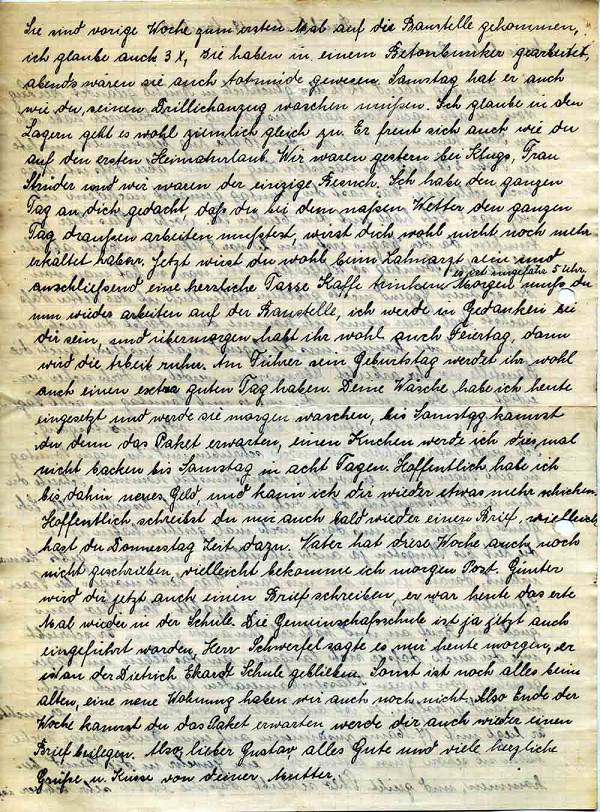 Sie sind vorige Woche zum ersten Mal auf die Baustelle gekommen,
ich glaube auch 3 x, Sie haben in einem Betonbunker gearbeitet,
abends wären sie auch totmüde gewesen. Samstag hat er auch
wie du, seinen Drillichanzug waschen müßen. Ich glaube in den
Lagern geht es wohl ziemlich gleich zu. Er freut sich auch wie du
auf den ersten Heimaturlaub. Wir waren gestern bei Klugs, Frau
Struder und wir waren der einzige Besuch. Ich habe den ganzen
Tag an dich gedacht, daß du bei dem naßen Wetter den ganzen
Tag draußen arbeiten mußtest, wirst dich wohl nicht noch mehr
erkältet haben. Jetzt wirst du wohl beim Zahnarzt sein und
es ist ungefähr 5 Uhr.
anschließend eine herrliche Tasse Kaffe trinken. Morgen mußt du
nun wieder arbeiten auf der Baustelle, ich werde in Gedanken bei
dir sein, und übermorgen habt ihr wohl auch Feiertag, dann
wird die Arbeit ruhn. Am Führer sein Geburtstag werdet ihr wohl
auch einen extra guten Tag haben. Deine Wäsche habe ich heute
eingesetzt und werde sie morgen waschen, bis Samstag kannst
du dann das Paket erwarten, einen Kuchen werde ich dies mal
nicht backen bis Samstag in acht Tagen. Hoffentlich habe ich
bis dahin neues Geld und kann ich dir wieder etwas mehr schicken.
Hoffentlich schreibst du mir auch bald wieder einen Brief, vielleicht
hast du Donnerstag Zeit dazu. Vater hat diese Woche auch noch
nicht geschrieben, vielleicht bekomme ich morgen Post. Günter
wird dir jetzt auch einen Brief schreiben, er war heute das erste
Mal wieder in der Schule. Die Gemeinschafsschule ist ja jetzt auch
eingeführt worden, Herr Schwerfel sagte es mir heute morgen, er
ist an der Dietrich Ekardt Schule geblieben. Sonst ist noch alles beim
alten, eine neue Wohnung haben wir auch noch nicht. Also Ende der
Woche kannst du das Paket erwarten werde dir auch wieder einen
Brief beilegen. Also, lieber Gustav, alles Gute und viele herzliche
Grüße u. Küsse von deiner Mutter.